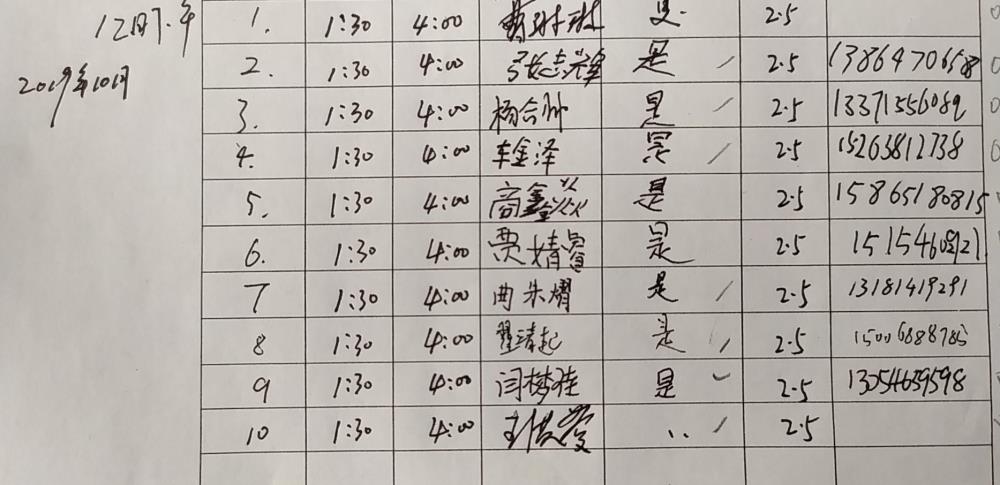 12月下午
2019年10月
1. 1:30 4:00 是 2.5
2. 1:30 4:00 张志辉 是 2.5 13864706588
3. 1:30 4:00 杨合帅 是 2.5 13371556089
4. 1:30 4:00 车金泽 是 2.5 15263812738
5. 1:30 4:00 高鑫焱 是 2.5 15865180815
6. 1:30 4:00 贾婧睿 是 2.5
7 1:30 4:00 曲朱熠 是 2.5 13181419291
8 1:30 4:00 翟靖起 是 2.5 15006888785
9 1:30 4:00 闫梦雅 是 2.5 13054659598
10 1:30 4:00 2.5